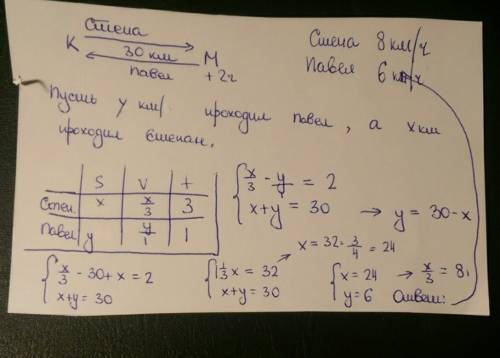 Стёпа
K 30 км M
Павел + 2ч
Стёпа 8 км/ч
Павел 6 км/ч
Пусть y км/ проходил павел, а x км
проходил Степан.
S V t
Степ. x x/3 3
Павел y y/1 1
{ x/3 - y/1 = 2
x+y = 30 → y = 30-x
{ x/3 - 30+x = 2
x+y = 30
{ 1 1/3 x = 32 → x = 32 · 3/4 = 24
x+y = 30
{ x = 24 → x/3 = 8
y = 6 Ответ: